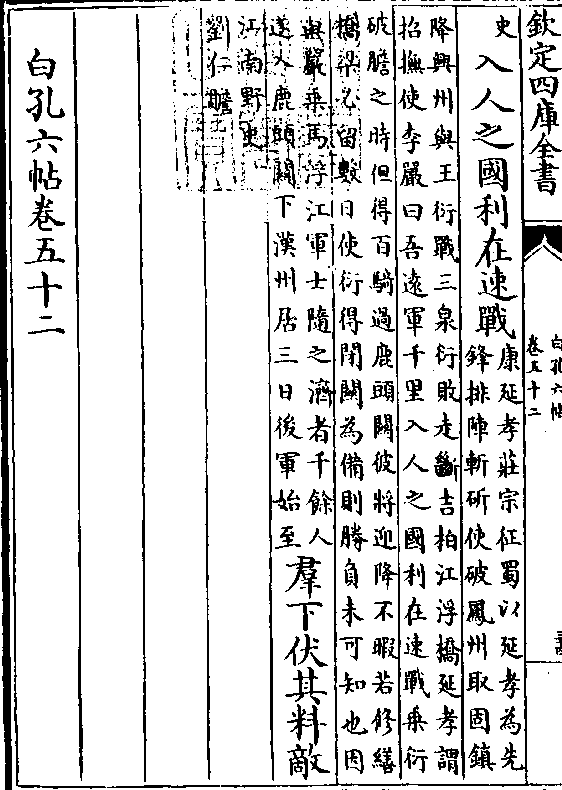 欽定四庫全書
白孔六帖
卷五十二
史
入人之國利在速戰
康延孝莊宗征蜀以延孝為先
鋒排陣斬斫使破鳳州取固鎮
降興州與王衍戰三泉衍敗走斷吉柏江浮橋延孝謂
招撫使李嚴曰吾遠軍千里入人之國利在速戰乘衍
破膽之時但得百騎過鹿頭關彼將迎降不暇若修繕
橋梁必留數日使衍得閉關為備則勝負未可知也因
與嚴乘馬浮江軍士隨之濟者千餘人
遂入鹿頭關下漢州居三日後軍始至
羣下伏其料敵
江南野史
劉仁瞻
白孔六帖卷五十二